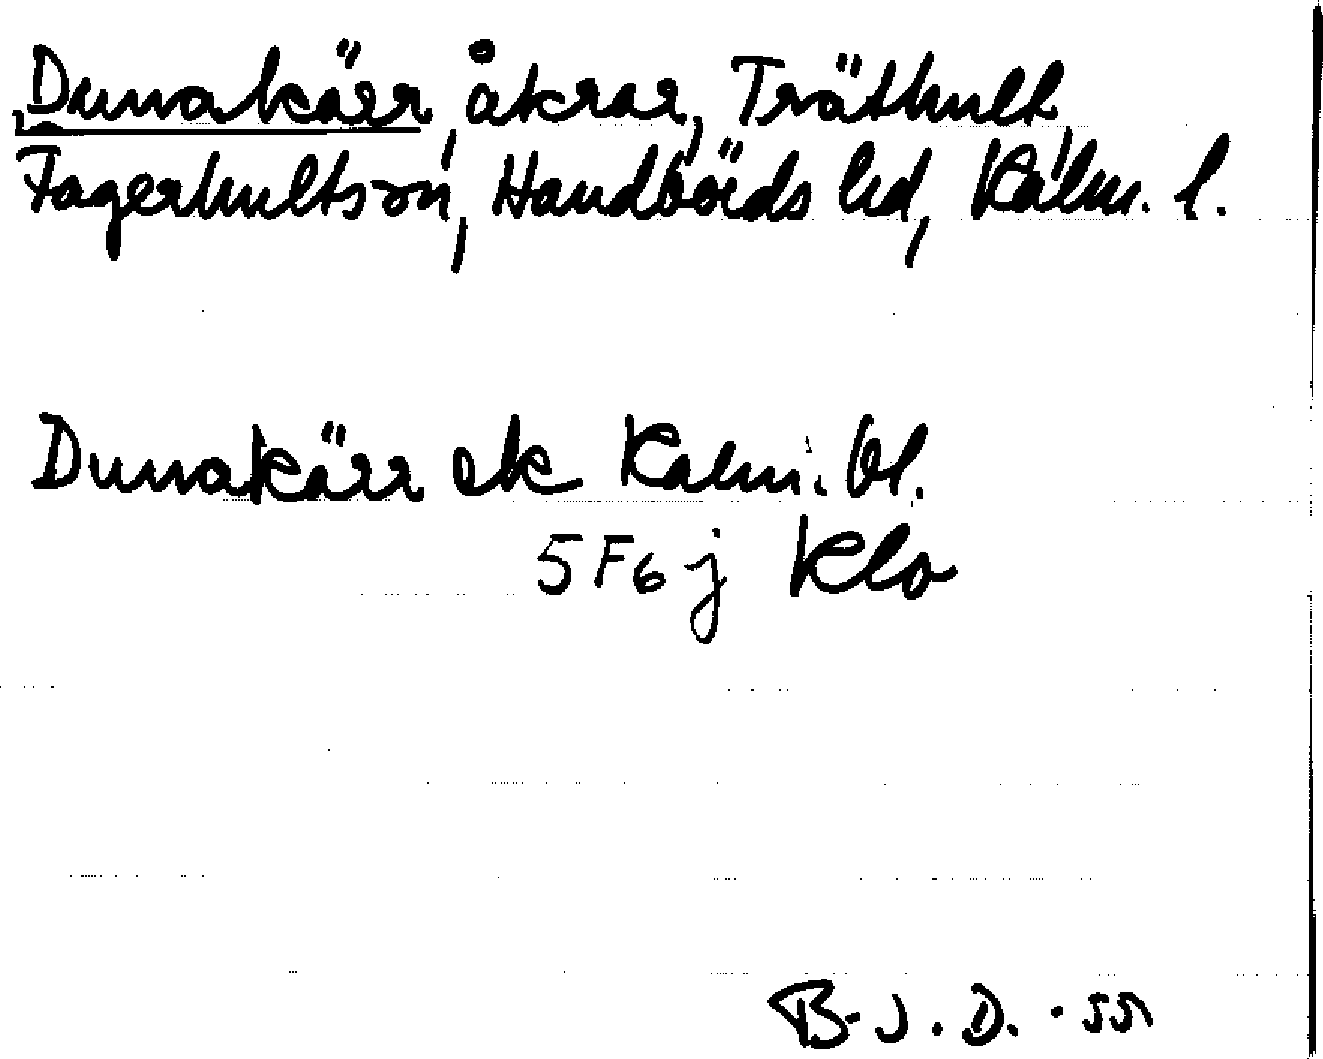 Dunakärr, åkrar, Träthult,
Fagerhults sn, Handbörds hd, Kalm. l.
Dunakärr ek Kalm. bl.
5F6j Klo
B-J. D. -55